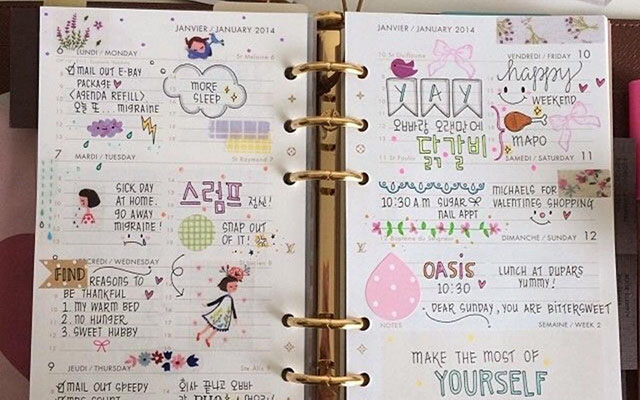 JANVIER / JANUARY 2014
6
LUNDI / MONDAY
St Melaine 6
MAIL OUT E-BAY
PACKAGE
<AGENDA REFILL>
오늘 또.. MIGRAINE
MORE
SLEEP
St Raymond 7
7
MARDI / TUESDAY
SICK DAY
AT HOME.
GO AWAY
MIGRAINE!
스럼프
SNAP OUT
OF IT!
CREDI / WEDNESDAY
FIND
REASONS TO
BE THANKFUL
1. MY WARM BED
2. NO HUNGER
3. SWEET HUBBY
9
JEUDI / THURSDAY
MAIL OUT SPEEDY
회사 끝나고 오빠랑
JANVIER / JANUARY 2014
VENDREDI / FRIDAY 10
YAY
happy
WEEKEND
오빠랑 오랜만에
닭갈비
MAPO
SAMEDI / SATURDAY 11
St Paulin 11
10:30 A.M SUGAR
NAIL APPT
MICHAELS FOR
VALENTINES SHOPPING
DIMANCHE / SUNDAY 12
OASIS
10:30
LUNCH AT DUPARS
YUMMY!
DEAR SUNDAY, YOU ARE BITTERSWEET
NOTES
SEMAINE / WEEK 2
MAKE THE MOST OF
YOURSELF